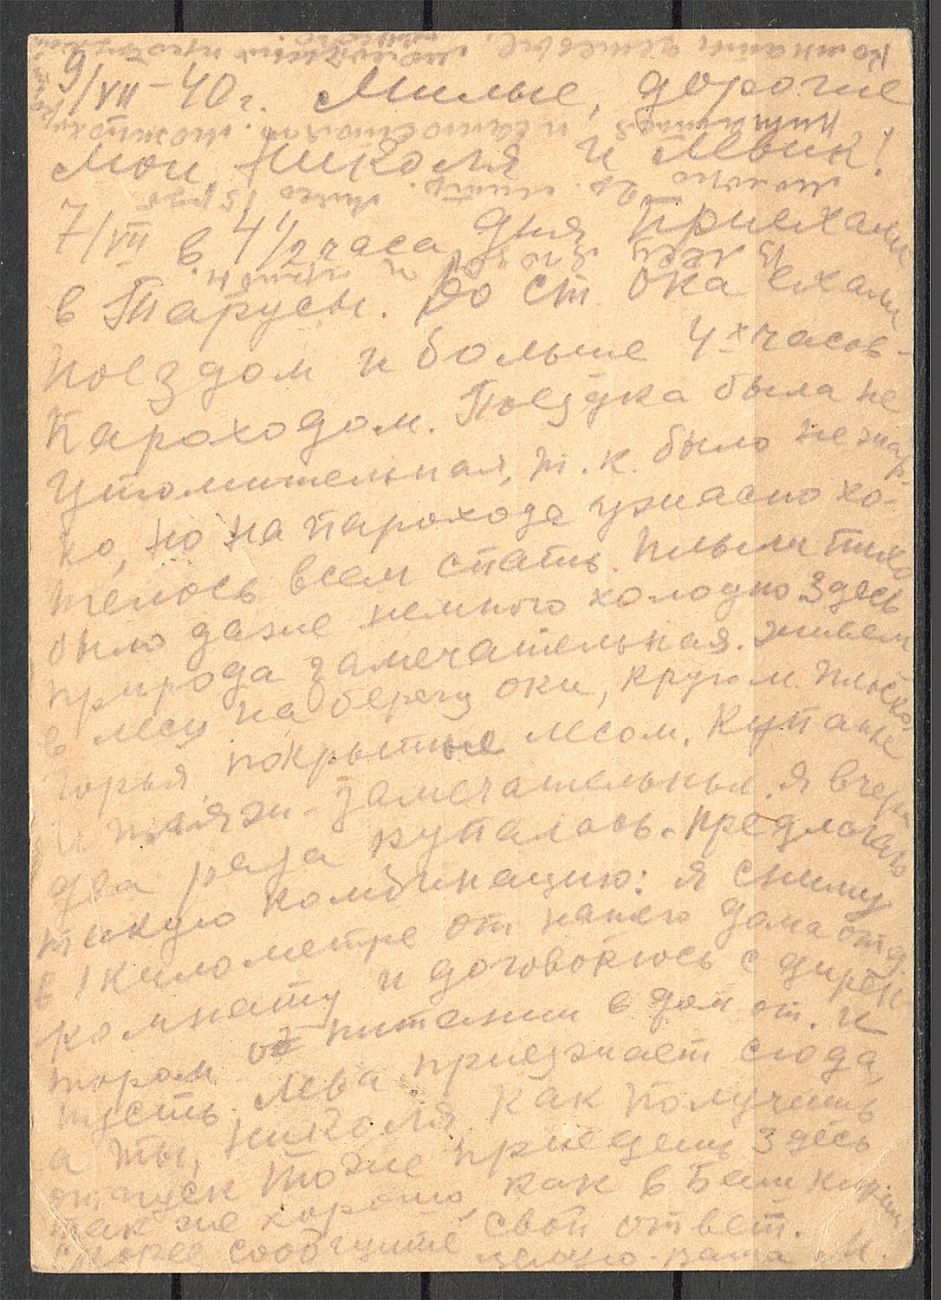 9/VII-40 г. Милые, дорогие
мои Николя и Левик!
7/VII в 4 1/2 часа дня приехали
в Тарусы. До ст. Ока ехали
поездом и больше 4х часов -
пароходом. Поездка была не
утомительная, т.к. было не жар-
ко, но на пароходе ужасно хо-
телось всем спать. Плыли тихо
было даже немного холодно Здесь
природа замечательная. живем
в лесу на берегу оки, кругом плоско-
горья, покрытые лесом. Купанье
и пляж - замечательные. Я вчера
два раза купалась. Предлагаю
такую комбинацию: я сниму
в 1 километре от нашего дома отд.
комнату и договорюсь с дирек-
тором об питании в дом от. и
пусть Лева приезжает сюда,
а ты, Николя как получишь
отпуск тоже приедешь Здесь
так же хорошо, как в
скорее сообщите свой ответ.
целую. ваша М.
комнаты дешевые,
молоко 2р. литр.